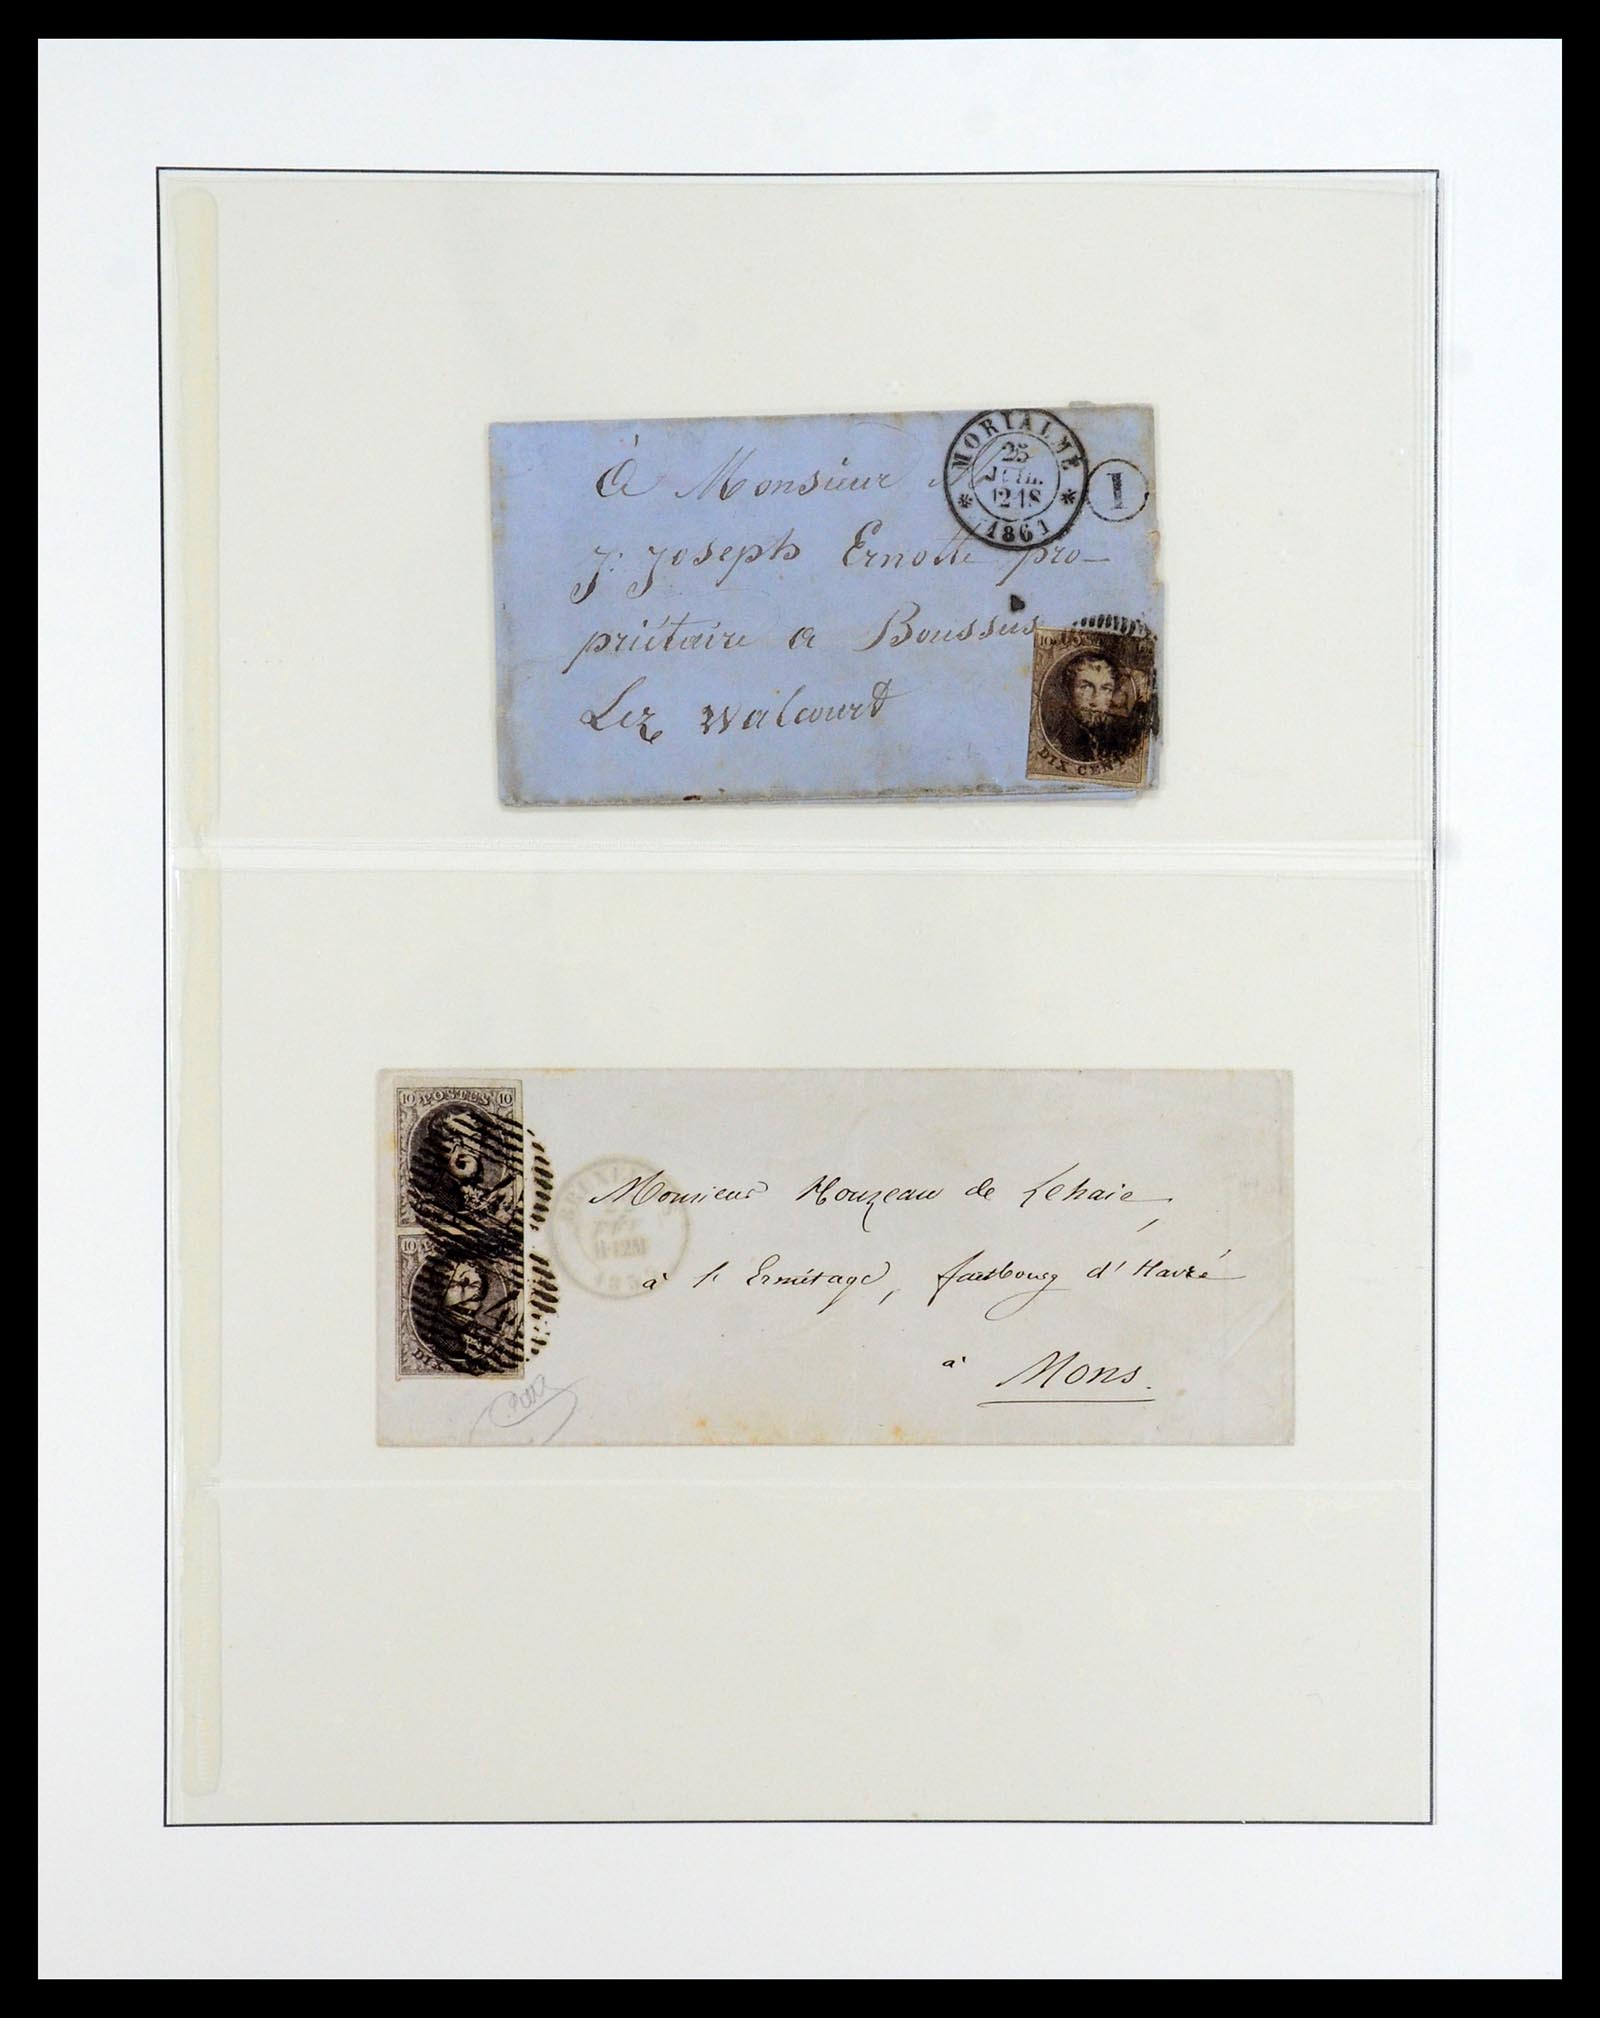 MORIALMÉ
25
12 1S
1861
1
à Monsieur
J. Joseph Ernotte pro-
priétaire a Boussus
Lez Walcourt
10
DIX CENT
10 POSTES 10
24
Monsieur Houzeau de Lehaie,
à l'Ermitage, faubourg d'Havré
à Mons.
10
24
DIX